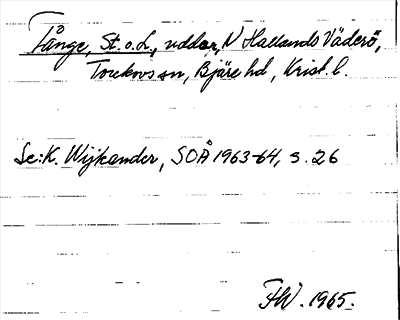 Tånge, St. o. L., uddar, N Hallands Väderö,
Torekovs sn, Bjäre hd, Krist. l.
Se: K. Wijkander, SOÅ 1963-64, s. 26
FW. 1965.